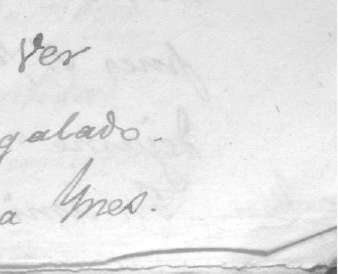 Ver
galado.
a Ynes.